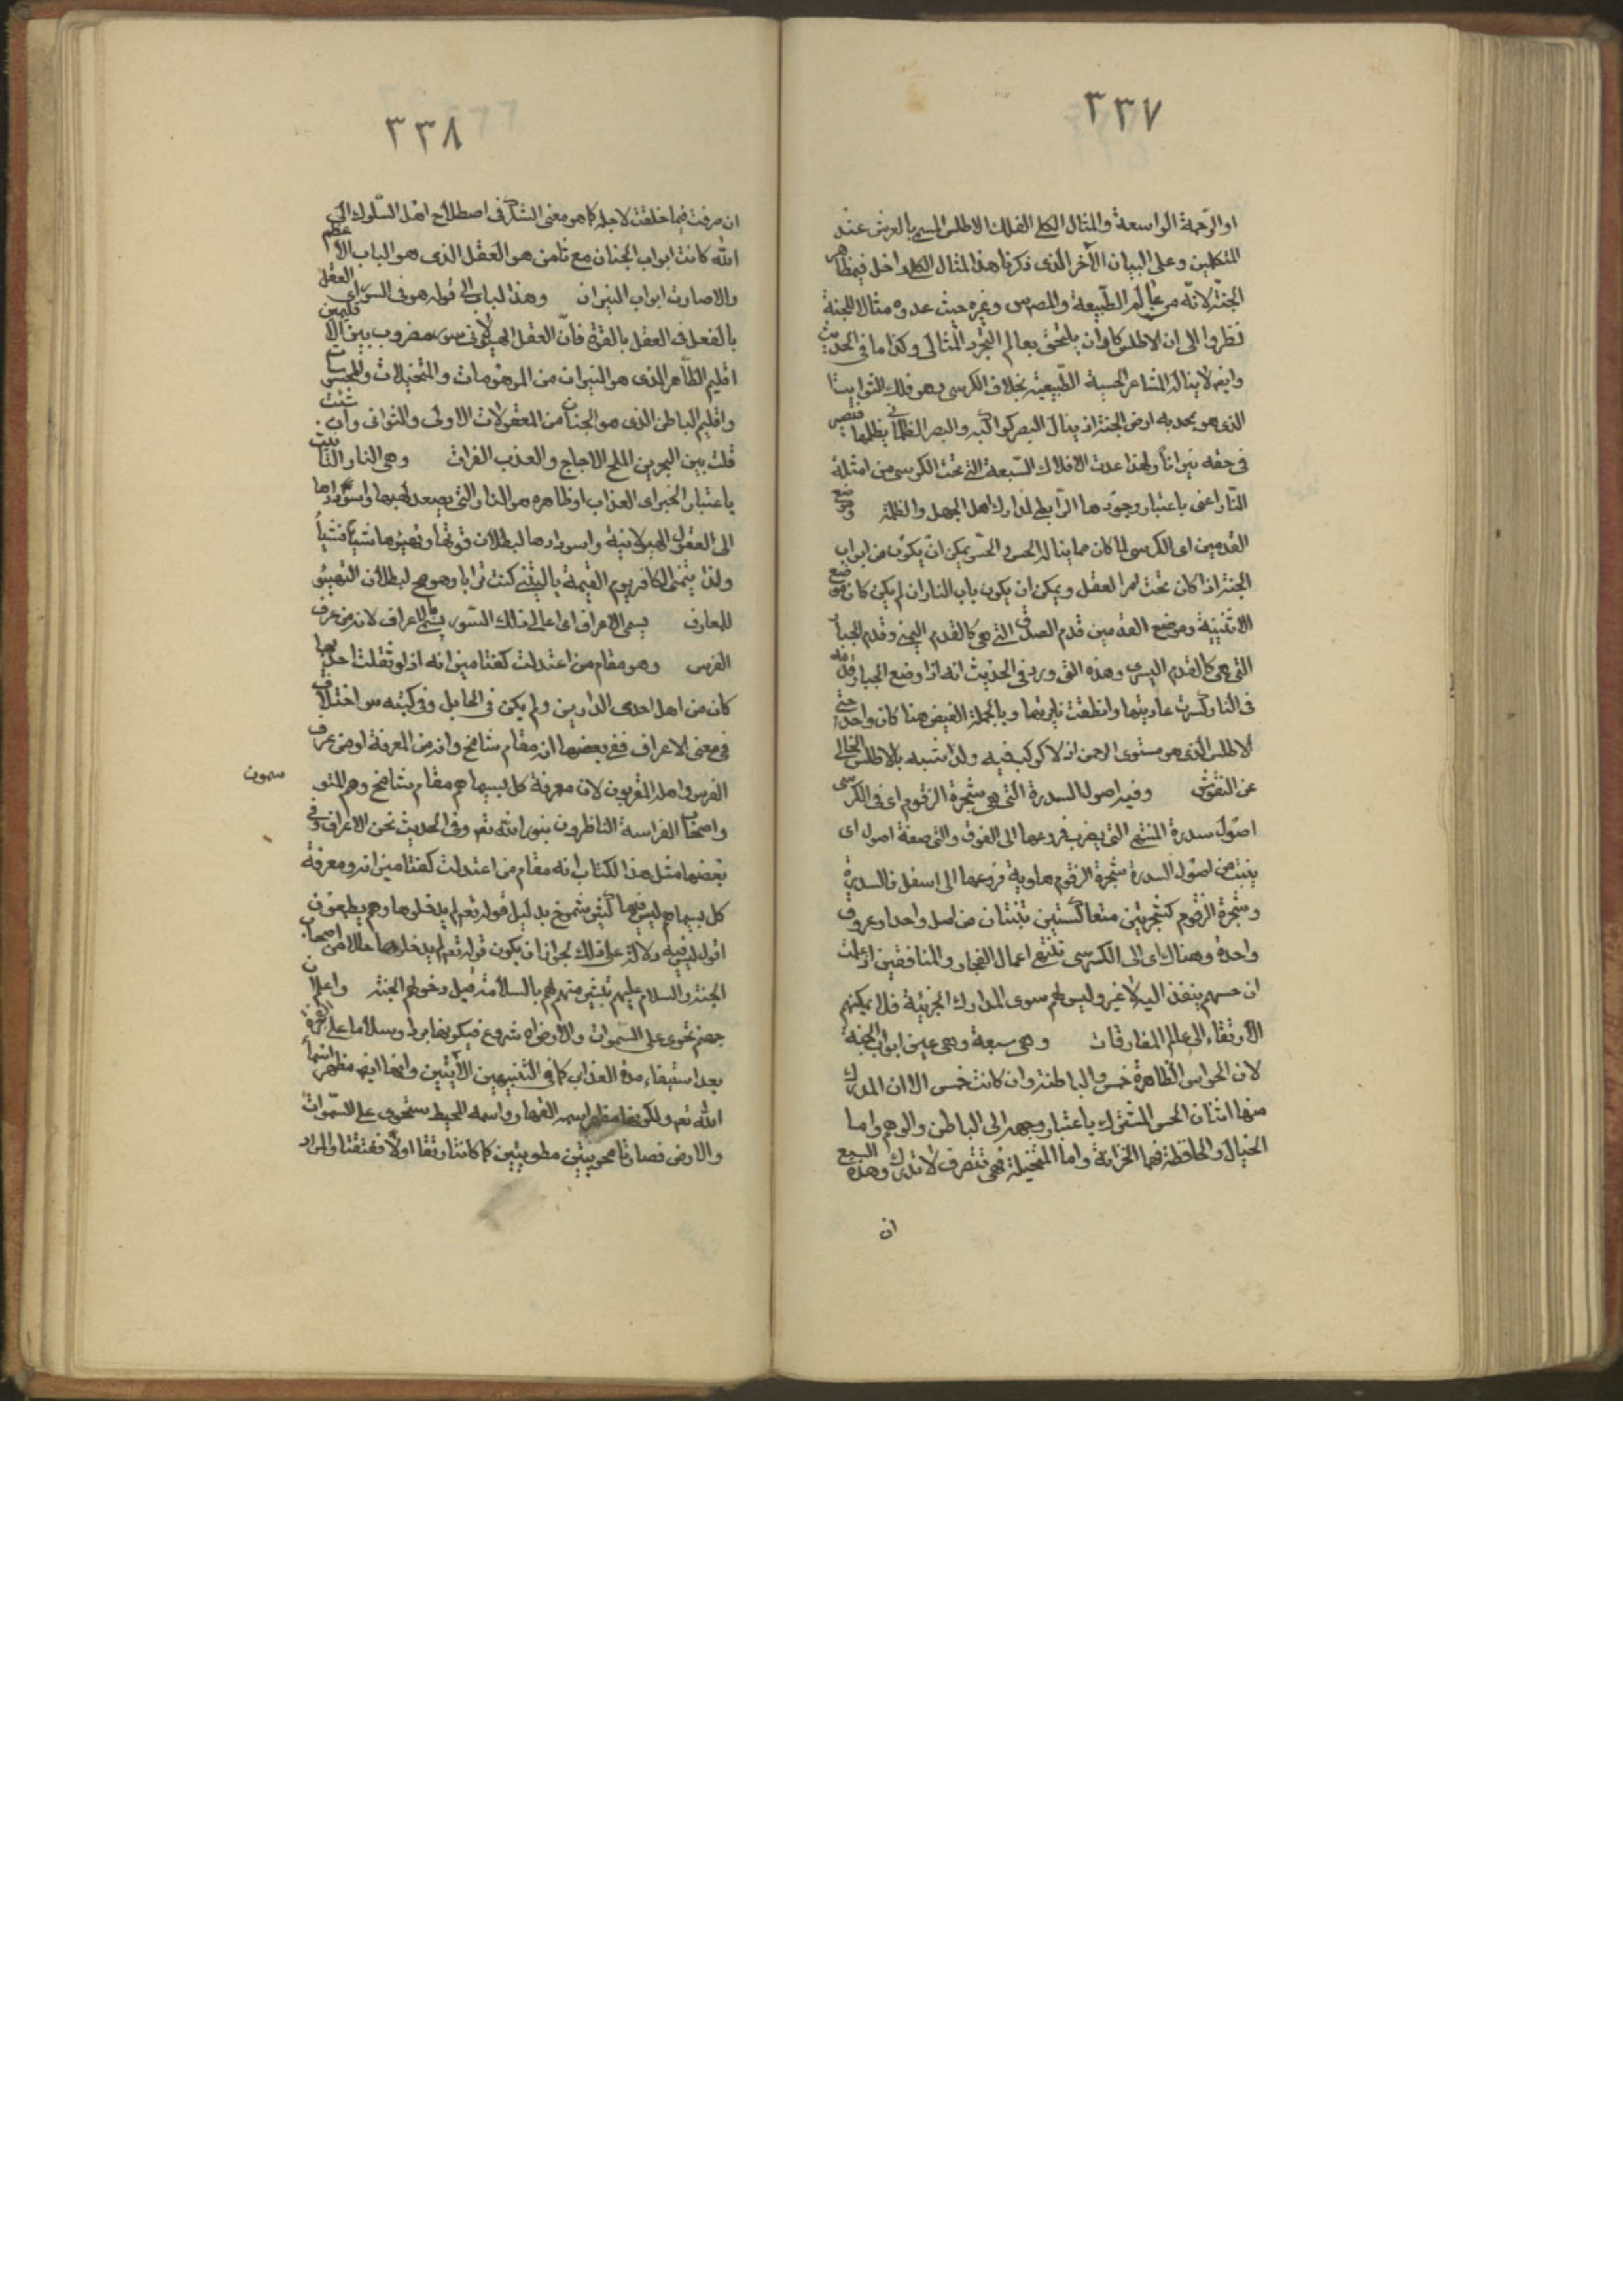 ٣٣٧
او الرّحمة الواسعة والمثال الكلى الفلك الاطلس المسمى بالعرش عند
المتكلمين وعلى البيان الآخر الذى ذكرنا هذا المثال الكلى داخل فى مظاهر
الجنة لانّه من عالم الطّبيعة والمصر وغيره حيث عدوه مثالا للجنة
نظروا الى ان الاطلس كاد ان يلتحق بعالم التجرد المثالى وكذا ما فى الحديث
وايضا لا يناله المشاعر الحسية الطّبيعية بخلاف الكرسى وهو فلك الثوابت
الذى هو محدبه ارض الجنة اذ ينال البصر كواكبه والبصر الظلمانى يظلمها فتصير
فى حقه نيرانا ولهذا عدت الافلاك السّبعة التى تحت الكرسى من امثلة
النّار اعنى باعتبار وجودها الرّابطى لمدارك اهل الجهل والظلمة وموضع
القدمين اى الكرسى لما كان مما يناله الحس والحسّ يمكن ان يكون من ابواب
الجنة اذا كان تحت امر العقل ويمكن ان يكون باب النار ان لم يكن كان موضع
الاثنينية وموضع القدمين قدم الصدق التى هى كالقدم اليمنى وقدم الجبار
التى هى كالقدم اليسرى وهذه التى ورد فى الحديث انه اذا وضع الجبار قدمه
فى النار كسرت عاديتها وانطفت نايرتها وبالجملة الفيض هنا كان واحدا حتى
الاطلس الذى هو مستوى الرحمن اذ لا كوكب فيه ولذا شبه بالاطلس الخالى
عن النقوش وفيه اصول السدرة التى هى شجرة الزقوم اى فى الكرسى
اصول سدرة المنتهى التى يضرب فروعها الى الفوق والتى صفة اصول اى
ينبت من اصول السدرة شجرة الزقوم هاوية فروعها الى اسفل فالسدرة
وشجرة الزقوم كشجرتين متعاكستين تنبتان من اصل واحد وعروق
واحدة وهناك اى الى الكرسى تنتهى اعمال الفجار والمنافقين اذ علمت
ان حسهم ينفذ اليه لا غير وليس لهم سوى المدارك الجزئية فلا يمكنهم
الارتقاء الى عالم المفارقات وهى سبعة وهى عين ابواب الجنة
لان الحواس الظاهرة خمس والباطنة وان كانت خمس الا ان المدرك
منها اثنان الحس المشترك باعتبار وجهه الى الباطن والوهم واما
الخيال والحافظة فهما الخزانة واما المتخيلة فهى تتصرف لا تدرك وهذه السبع
ان
٣٣٨
ان صرفت فيما خلقت لاجله كما هو معنى الشكر فى اصطلاح اهل السّلوك الى
الله كانت ابواب الجنان مع ثامن هو العقل الذى هو الباب الاعظم
والا صارت ابواب النيران وهذا الباب الى قوله هو فى السور اى العقل
بالفعل فى العقل بالقوة فانّ العقل الهيولانى سور مضروب بين الاقليمين
اقليم الظاهر الذى هو النيران من الموهومات والمتخيلات والمحسوسات
واقليم الباطن الذى هو الجنان من المعقولات الاولى والثوانى وان شئت
قلت بين البحرين الملح الاجاج والعذب الفرات وهى النار التى
باعتبار الخبر اى العذاب او ظاهره هو النار التى يصعد لهبها واسودادها
الى العقول الهيولانية واسودادها لبطلان قوتها وتهيؤها شيئا فشيئا
ولذا يتمنى الكافر يوم القيمة يا ليتنى كنت ترابا وهو هى لبطلان التهيؤ
للمعارف يسمى الاعراف اى اعالى ذلك السّور يسمى بالاعراف لانه من عرف
الفرس وهو مقام من اعتدلت كفتا ميزانه اذ لو ثقلت احديها
كان من اهل احدى الدارين ولم يكن فى الحايل وفى كتبه س اختلاف
فى معنى الاعراف ففى بعضها انه مقام شامخ وانه من المعرفة او من عرف
الفرس واهله المقربون لان معرفة كل بسيماهم مقام شامخ وهم المتو
سمون
واصحاب الفراسة الناظرون بنور الله تعالى وفى الحديث نحن الاعراف وفى
بعضها مثل هذا الكتاب انه مقام من اعتدلت كفتا ميزانه ومعرفة
كل بسيماهم ليس فيها كثير شموخ بدليل قوله تعم لم يدخلوها وهم يطمعون
اقول ليس فيه دلالة على ذلك لجواز ان يكون قوله تعم لم يدخلوها حالا من اصحاب
الجنة والسلام عليهم تبشير منهم لهم بالسلامة قبل دخولهم الجنة واعلم ان
جهنم تحوى على السموات والارض اه شروع فيكونها بردا وسلاما على
بعد استيفاء مدة العذاب كما فى التنبيهين الآتيين وانها ايضا مظهر اسماء
الله تعم ولكونها مظهر اسمه القهار واسمه المحيط ستحوى على السّموات
والارض فصارتا محويتين مطويتين كما كانتا رتقا اولا ففتقتا والمراد